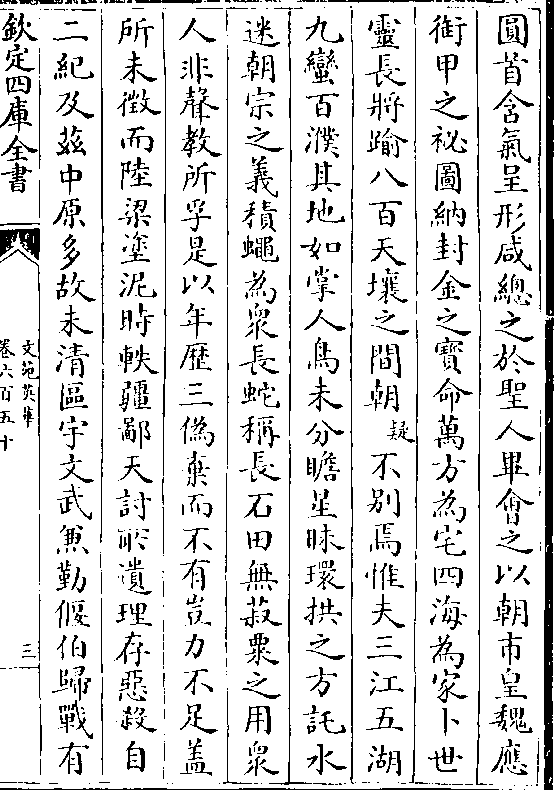 圓首含氣呈形咸總之於聖人畢會之以朝市皇魏應
銜甲之祕圖納封金之寶命萬方為宅四海為家卜世
靈長將踰八百天壤之間朝疑不別焉惟夫三江五湖
九蠻百濮其地如掌人鳥未分瞻星昧環拱之方託水
迷朝宗之義積蠅為衆長蛇稱長石田無菽粟之用衆
人非聲教所孚是以年歴三僞棄而不有豈力不足盖
所未徴而陸梁塗泥時軼疆鄙天討所遺理存惡殺自
二紀及兹中原多故未清區宇文武兼勤偃伯歸戰有
欽定四庫全書
文苑英華
卷六百五十
三